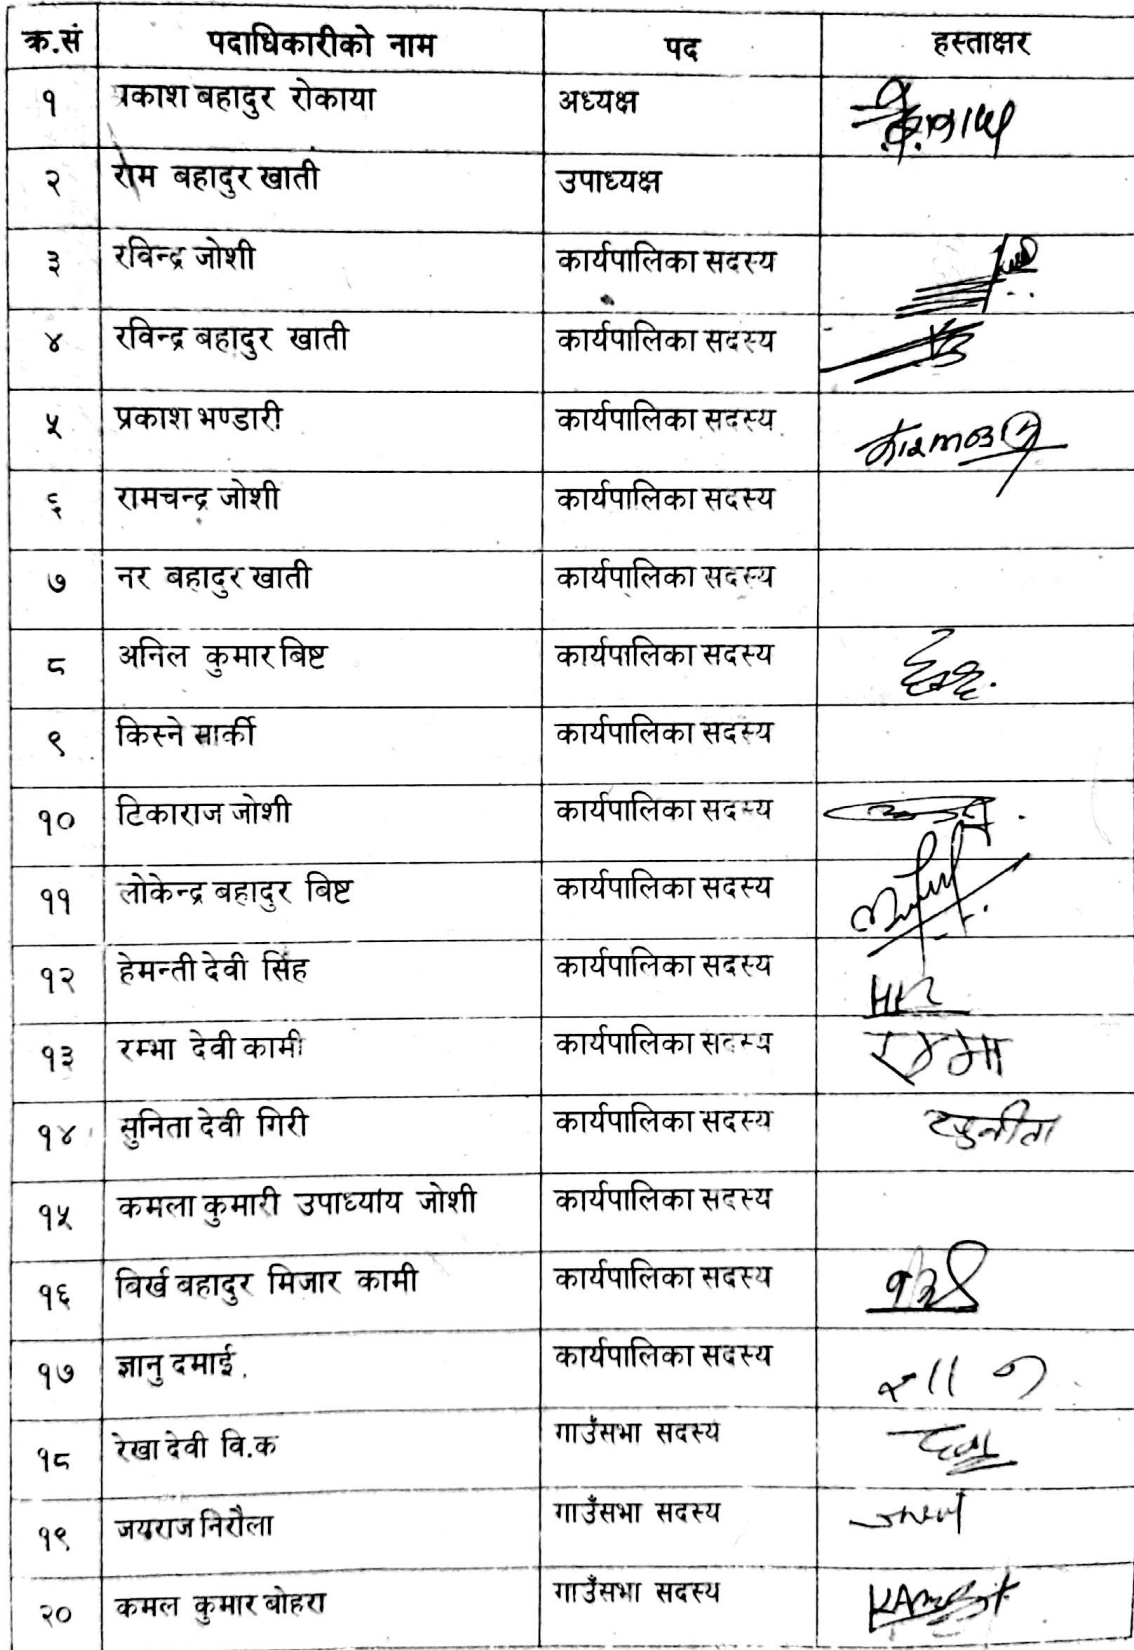 क्र.सं पदाधिकारीको नाम पद हस्ताक्षर
१ प्रकाश बहादुर रोकाया अध्यक्ष
२ राम बहादुर खाती उपाध्यक्ष
३ रविन्द्र जोशी कार्यपालिका सदस्य
४ रविन्द्र बहादुर खाती कार्यपालिका सदस्य
५ प्रकाश भण्डारी कार्यपालिका सदस्य
६ रामचन्द्र जोशी कार्यपालिका सदस्य
७ नर बहादुर खाती कार्यपालिका सदस्य
८ अनिल कुमार बिष्ट कार्यपालिका सदस्य
९ किस्ने सार्की कार्यपालिका सदस्य
१० टिकाराज जोशी कार्यपालिका सदस्य
११ लोकेन्द्र बहादुर बिष्ट कार्यपालिका सदस्य
१२ हेमन्ती देवी सिंह कार्यपालिका सदस्य
१३ रम्भा देवी कामी कार्यपालिका सदस्य
१४ सुनिता देवी गिरी कार्यपालिका सदस्य
१५ कमला कुमारी उपाध्याय जोशी कार्यपालिका सदस्य
१६ बिर्ख बहादुर मिजार कामी कार्यपालिका सदस्य
१७ ज्ञानु दमाई कार्यपालिका सदस्य
१८ रेखा देवी वि.क गाउँसभा सदस्य
१९ जयराज निरौला गाउँसभा सदस्य
२० कमल कुमार बोहरा गाउँसभा सदस्य